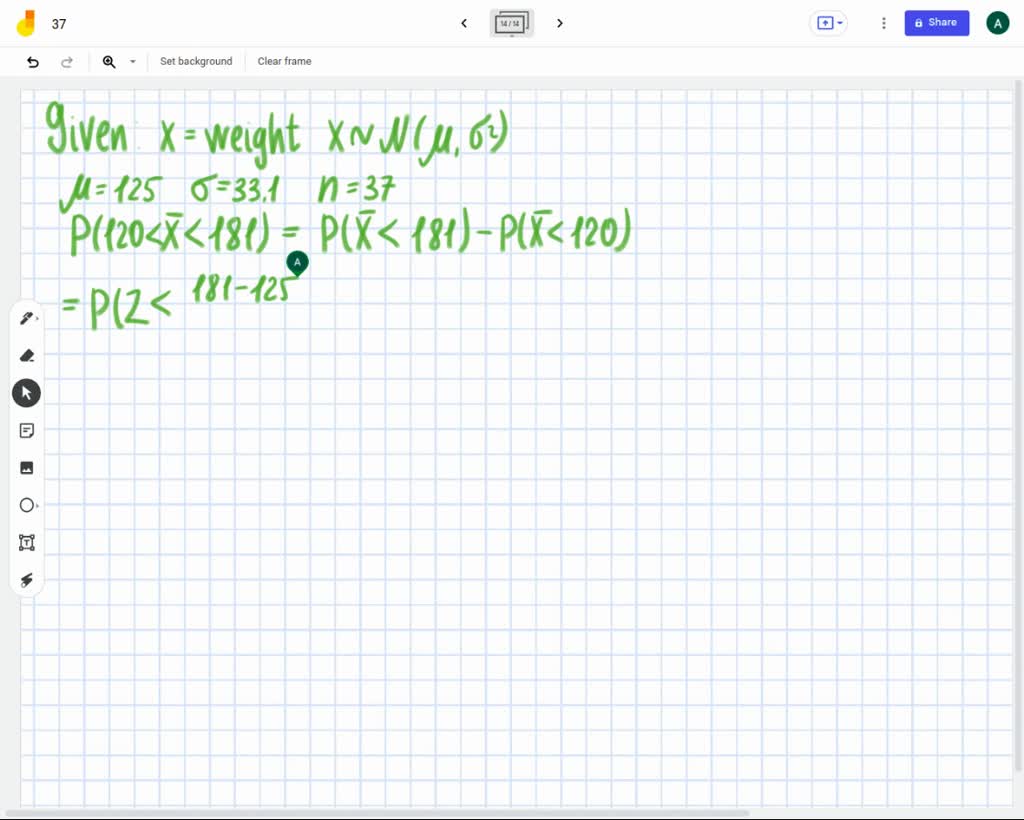 37
14 / 14
Share
A
Set background
Clear frame
Given: x = weight x ~ N(μ, σ²)
μ = 125 σ = 33.1 n = 37
P(120 < x̄ < 181) = P(x̄ < 181) - P(x̄ < 120)
A
= P(Z < 181 - 125